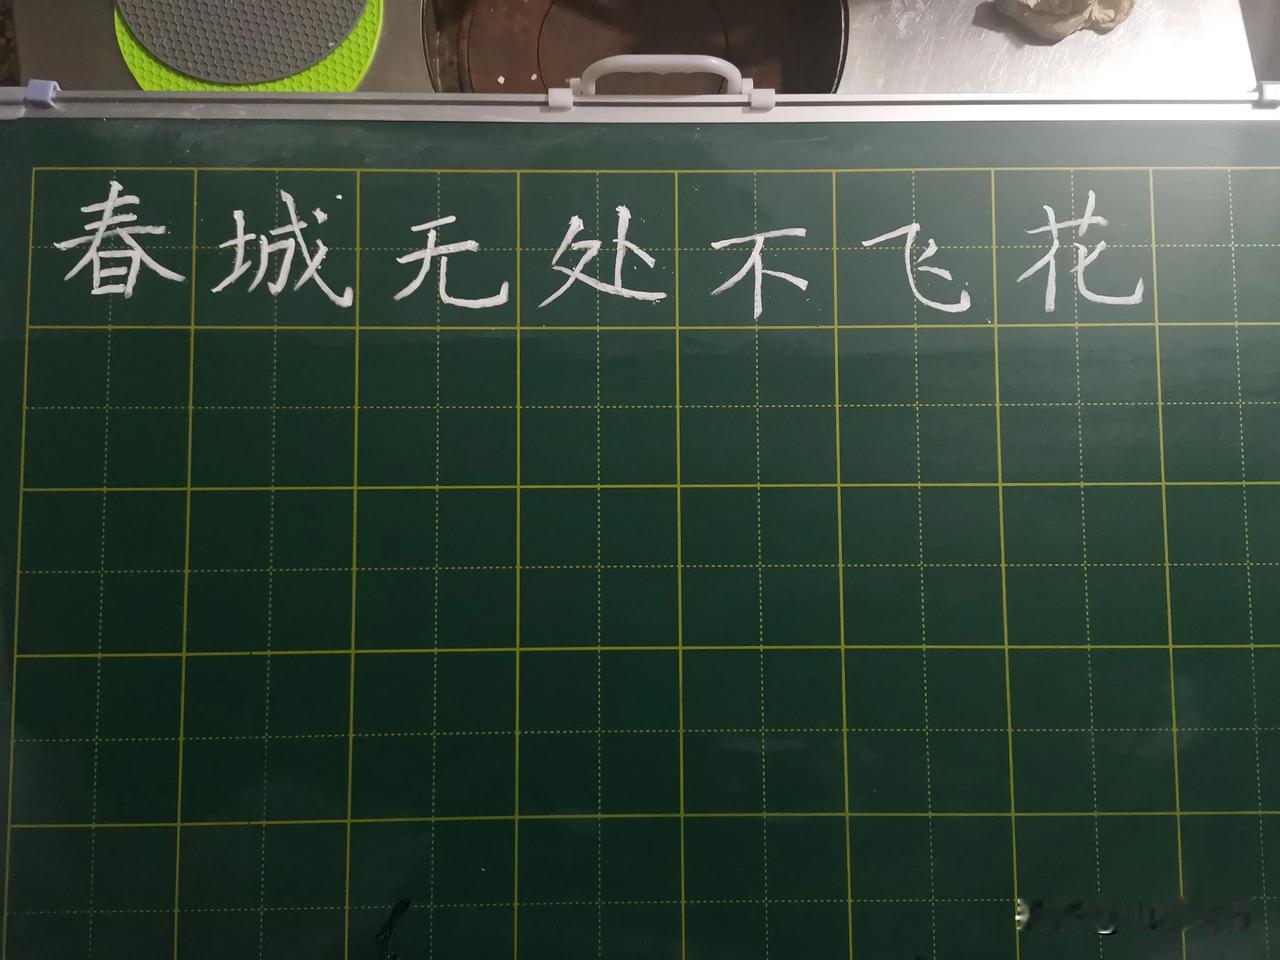 春城无处不飞花